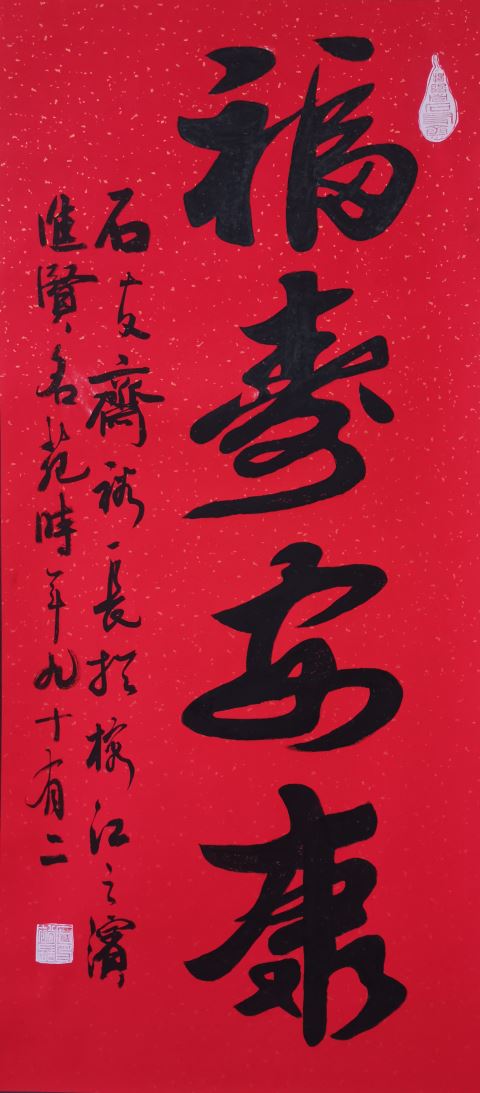 福寿安康
石友齋裕長於榕江之濱
進賢名苑時年九十有二